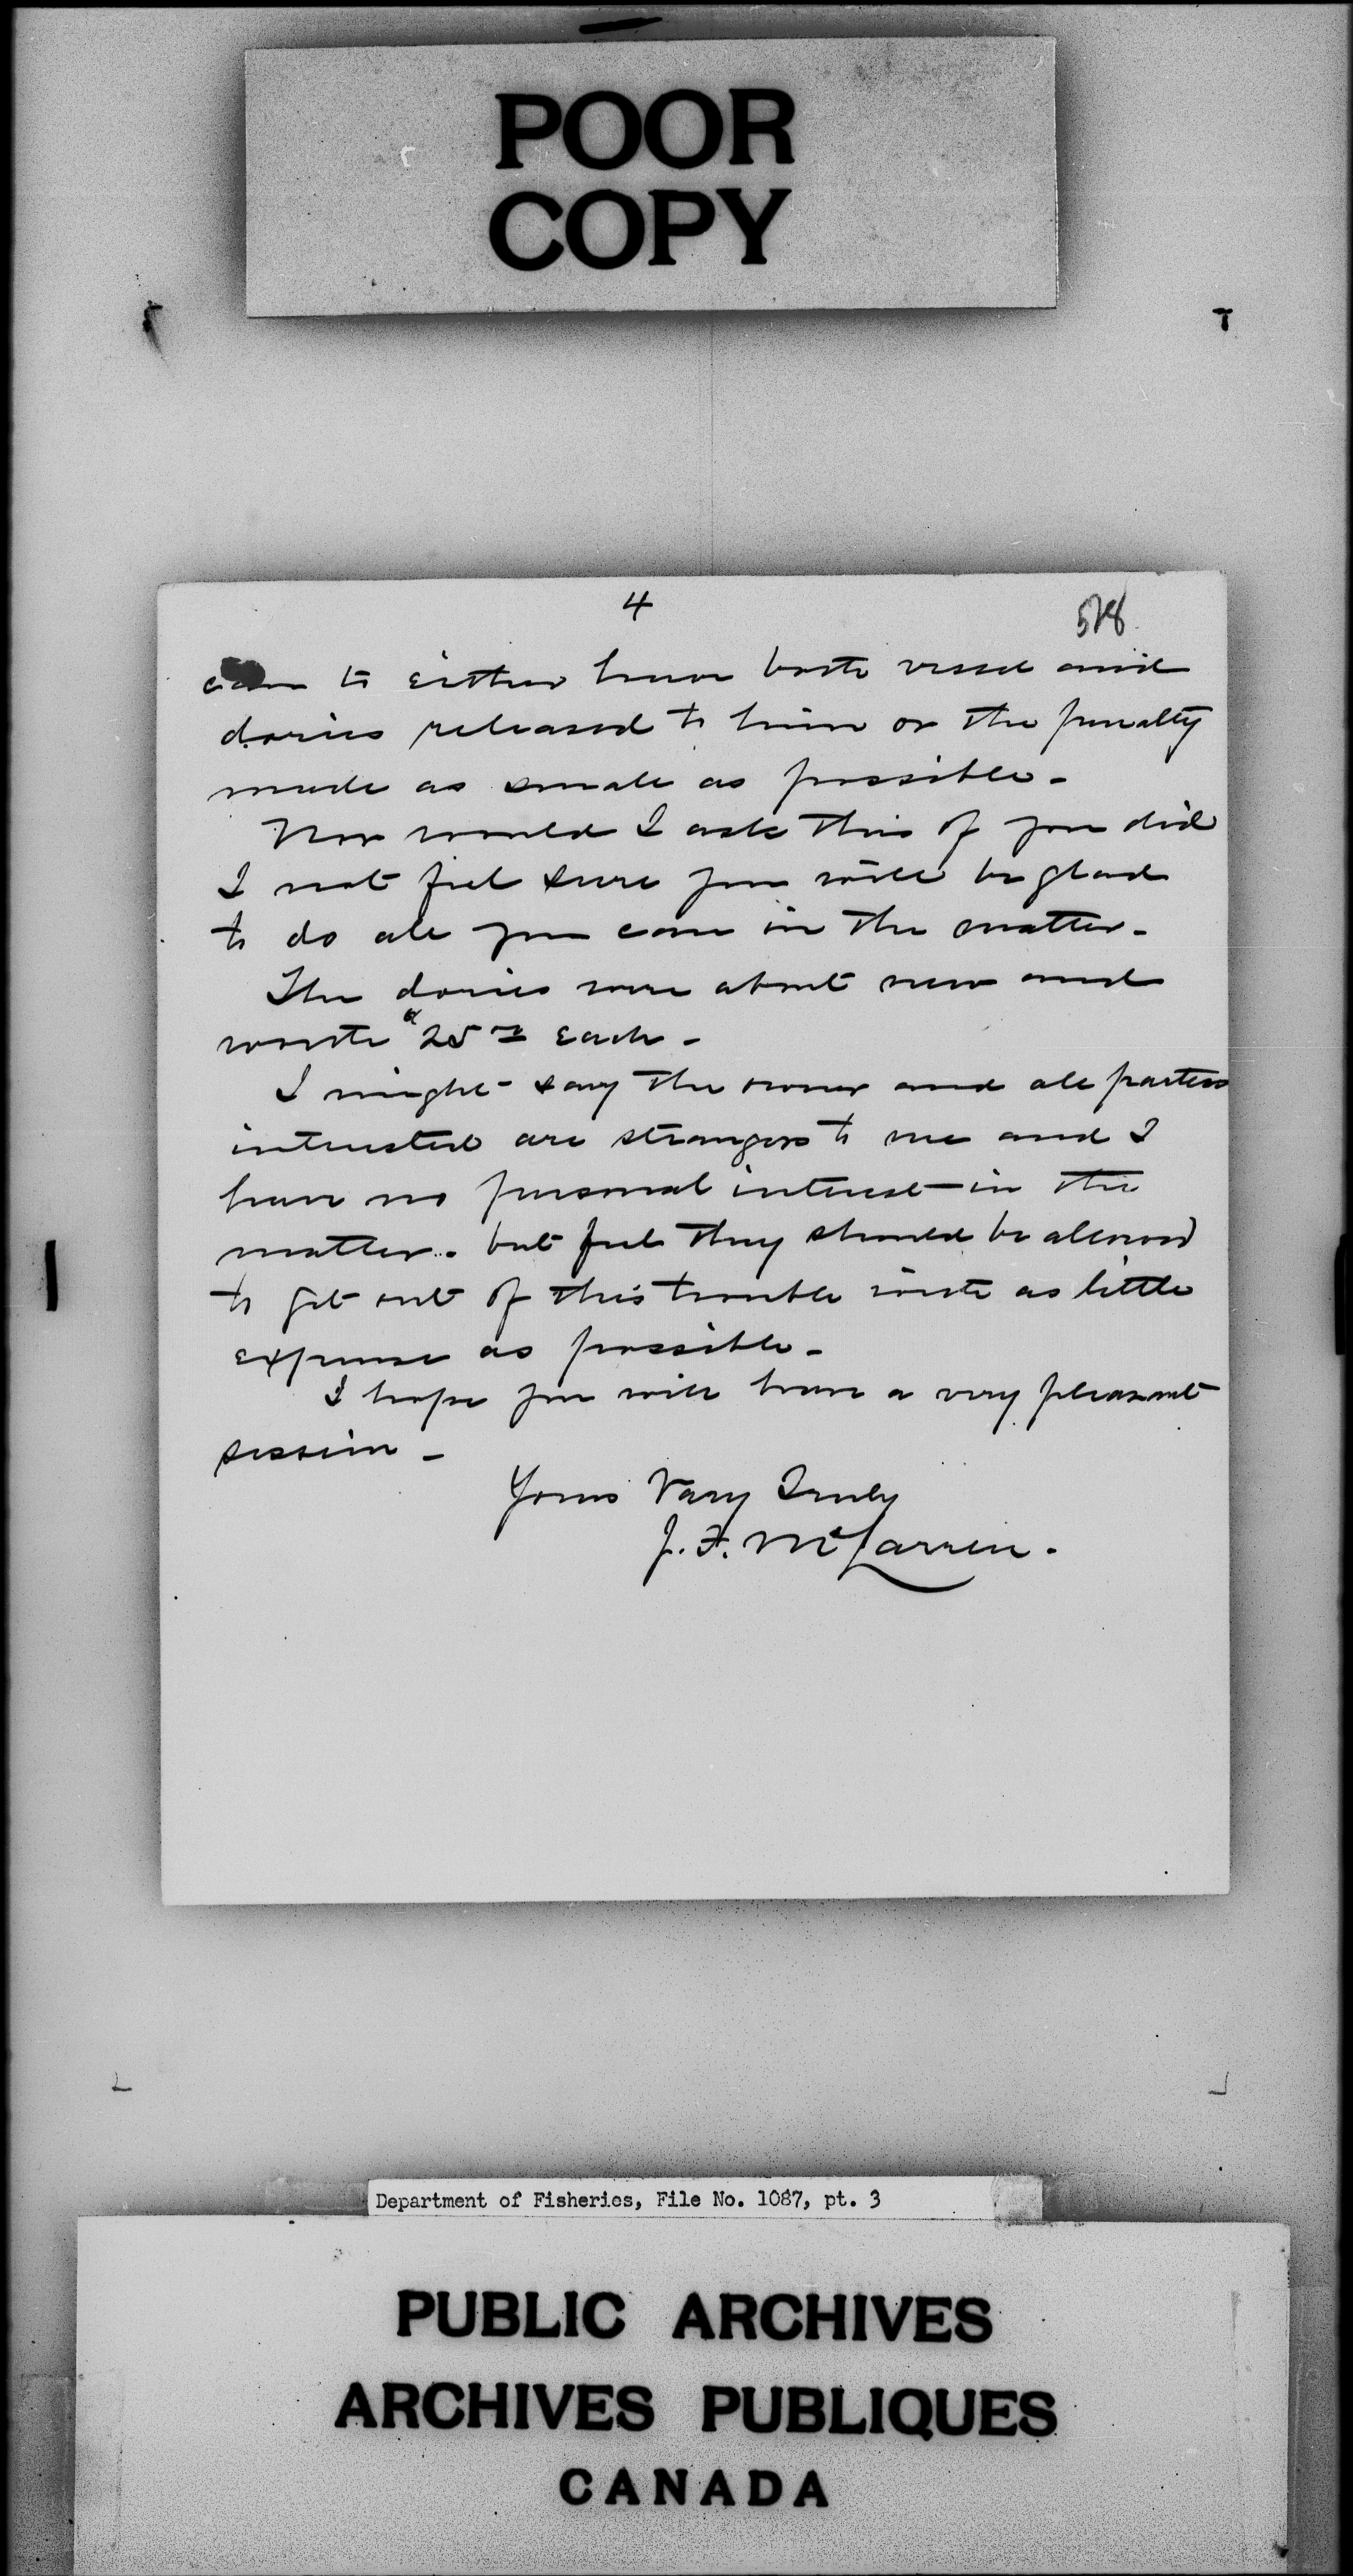 POOR
COPY
4
528
can to either have both vessel and
dories released to him or the penalty
made as small as possible -
Nor would I ask this of you did
I not feel sure you will be glad
to do all you can in the matter -
The dories were about new and
worth $25 00 each -
I might say the owner and all parties
interested are strangers to me and I
have no personal interest in the
matter. but feel they should be allowed
to get out of this trouble with as little
expense as possible -
I hope you will have a very pleasant
session -
Yours Very Truly
J. F. McLarren.
Department of Fisheries, File No. 1087, pt. 3
PUBLIC ARCHIVES
ARCHIVES PUBLIQUES
CANADA